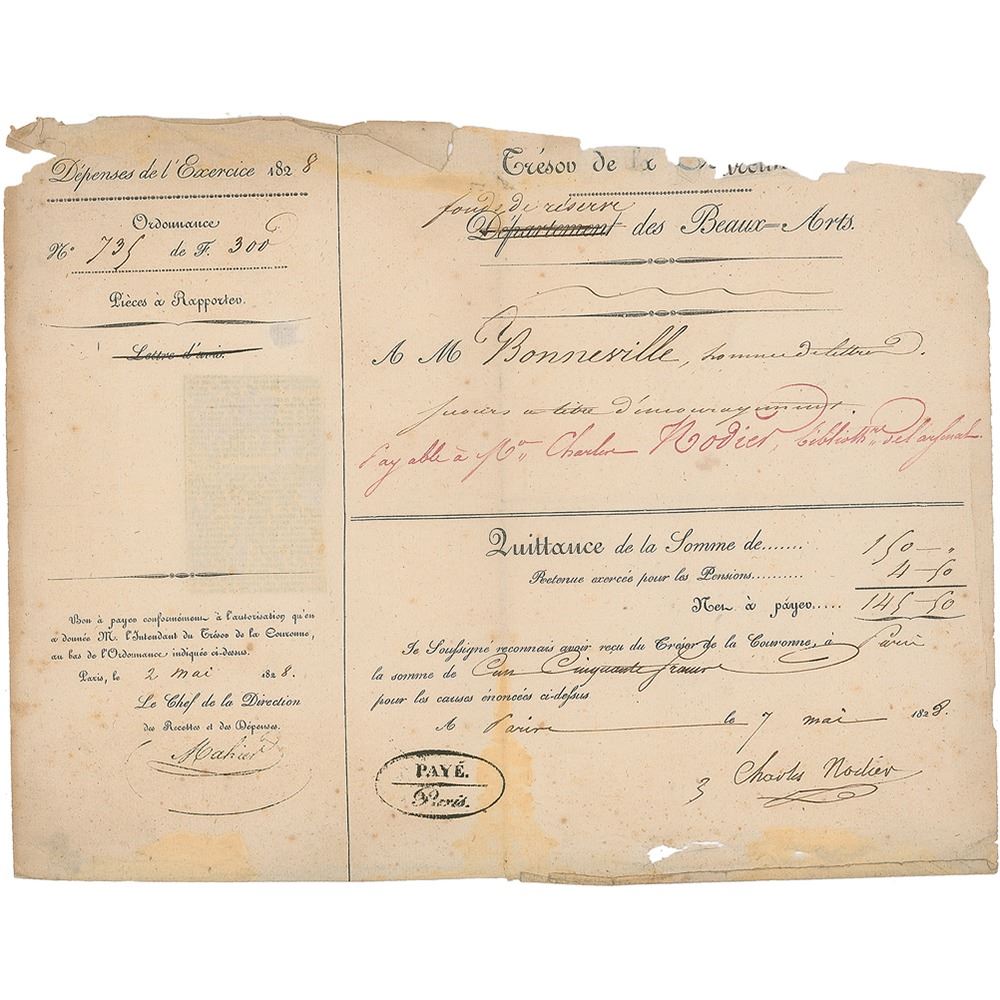 Dépenses de l'Exercice 1828
Ordonnance
N° 735 de F. 300
Pièces à Rapporter.
Lettre d'avis.
Bon à payer conformément à l'autorisation qu'en
a donnée M. l'Intendant du Trésor de la Couronne,
au bas de l'Ordonnance indiquée ci-dessus.
Paris, le 2 mai 1828.
Le Chef de la Direction
des Recettes et des Dépenses.
Mahier
Trésor de la
fonds de réserve
Département des Beaux-Arts.
A M Bonneville, homme de lettres.
secours a titre d'encouragement.
Payable à Mr Charles Nodier, biblioth.re de l'arsenal
Quittance de la Somme de....... 150 — "
Retenue exercée pour les Pensions.......... 4 — 50
Net à payer..... 145 — 50
Je Soussigné reconnais avoir reçu du Trésor de la Couronne, à Paris
la somme de Cent Cinquante francs
pour les causes énoncées ci-dessus
A Paris le 7 mai 1828.
Charles Nodier
PAYÉ.
Paris.